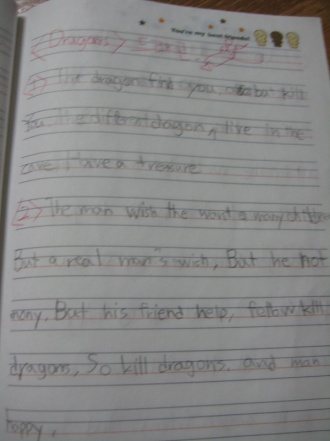 You're my best friends
<Dragons>
① The dragon fine you, but kill
you. It is different dragon, live in the
cave. I have a treasure
② The man wish the word a many
But a real man's wish, But he not
many, But his friend help, follow kill
dragons, So kill dragons. and man
happy,